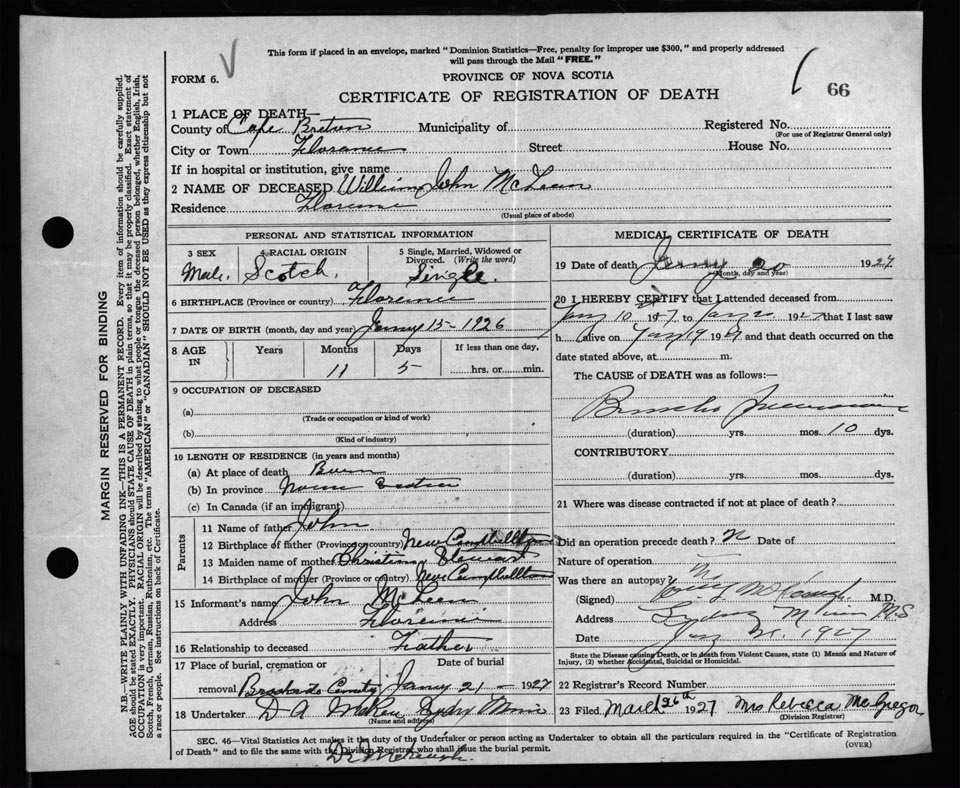 This form if placed in an envelope, marked "Dominion Statistics—Free, penalty for improper use $300," and properly addressed
will pass through the Mail "FREE."
FORM 6.
PROVINCE OF NOVA SCOTIA
66
CERTIFICATE OF REGISTRATION OF DEATH
1 PLACE OF DEATH—
County of Cape Breton Municipality of Registered No.
(For use of Registrar General only)
City or Town Florence Street House No.
If in hospital or institution, give name
2 NAME OF DECEASED William John McLean
Residence Florence
(Usual place of abode)
PERSONAL AND STATISTICAL INFORMATION
3 SEX 4 RACIAL ORIGIN 5 Single, Married, Widowed or
Divorced. (Write the word)
Male. Scotch. Single.
6 BIRTHPLACE (Province or country) Florence
7 DATE OF BIRTH (month, day and year) Janny 15-1926
8 AGE IN Years Months Days If less than one day,
11 5 hrs. or min.
9 OCCUPATION OF DECEASED
(a)
(Trade or occupation or kind of work)
(b)
(Kind of industry)
10 LENGTH OF RESIDENCE (in years and months)
(a) At place of death Born
(b) In province Nova Scotia
(c) In Canada (if an immigrant)
Parents
11 Name of father John
12 Birthplace of father (Province or country) New Campbellton
13 Maiden name of mother Christina Stewart
14 Birthplace of mother (Province or country) New Campbellton
15 Informant's name John McLean
Address Florence
16 Relationship to deceased Father
17 Place of burial, cremation or Date of burial
removal County Janny 21 - 1927
18 Undertaker D A McRae Sydny Mines
(Name and address)
MEDICAL CERTIFICATE OF DEATH
19 Date of death 20 1927
(Month, day and year)
20 I HEREBY CERTIFY that I attended deceased from
Jany 10 1927 to Jany 20 1927 that I last saw
h alive on Jany 19 1927 and that death occurred on the
date stated above, at m.
The CAUSE of DEATH was as follows:—
Broncho Pneumonia
(duration) yrs. mos. 10 dys.
CONTRIBUTORY
(duration) yrs. mos. dys.
21 Where was disease contracted if not at place of death?
Did an operation precede death? Date of
Nature of operation
Was there an autopsy? no
(Signed) M.D.
Address Sydney Mines NS
Date Jany 21. 1927
State the Disease causing Death, or in death from Violent Causes, state (1) Means and Nature of
Injury, (2) whether Accidental, Suicidal or Homicidal.
22 Registrar's Record Number
23 Filed March 26th 1927 Mrs Rebecca McGregor
(Division Registrar)
SEC. 46—Vital Statistics Act makes it the duty of the Undertaker or person acting as Undertaker to obtain all the particulars required in the "Certificate of Registration
of Death" and to file the same with the Division Registrar who shall issue the burial permit.
(OVER)
MARGIN RESERVED FOR BINDING
N.B.—WRITE PLAINLY WITH UNFADING INK—THIS IS A PERMANENT RECORD. Every item of information should be carefully supplied.
AGE should be stated EXACTLY. PHYSICIANS should STATE CAUSE OF DEATH in plain terms, so that it may be properly classified. Exact statement of
OCCUPATION is very important. RACIAL ORIGIN will be described by stating to what people or tongue the deceased person belonged, whether English, Irish,
Scotch, French, German, Russian, Ruthenian, etc. The terms "AMERICAN" or "CANADIAN" SHOULD NOT BE USED as they express citizenship but not
a race or people. See instructions on back of Certificate.